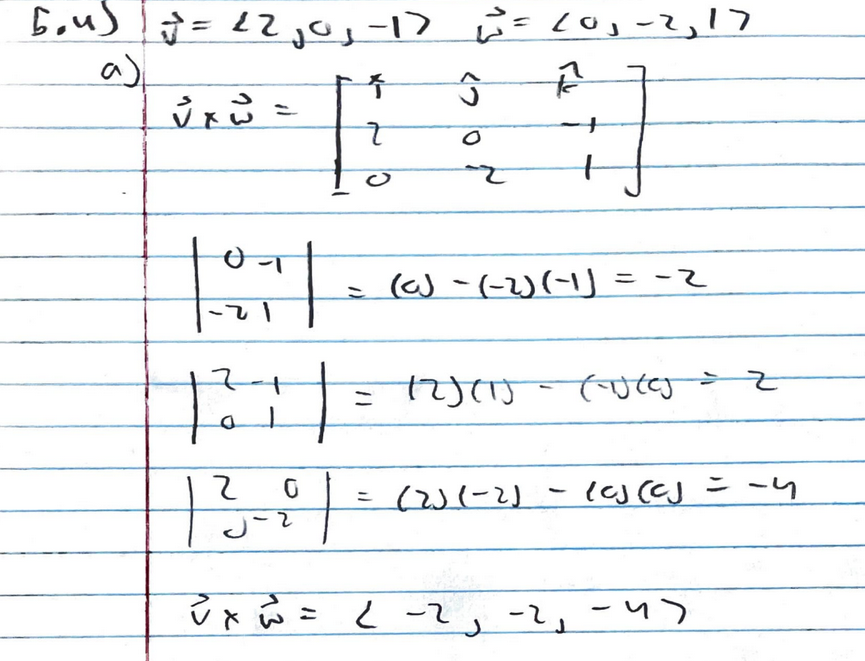 5.4) v⃗ = <2, 0, -1> w⃗ = <0, -2, 1>
a)
v⃗ x w⃗ = [ î ĵ k̂
2 0 -1
0 -2 1 ]
| 0 -1
-2 1 | = (0) - (-2)(-1) = -2
| 2 -1
0 1 | = (2)(1) - (-1)(0) = 2
| 2 0
0 -2 | = (2)(-2) - (0)(0) = -4
v⃗ x w⃗ = < -2, -2, -4>